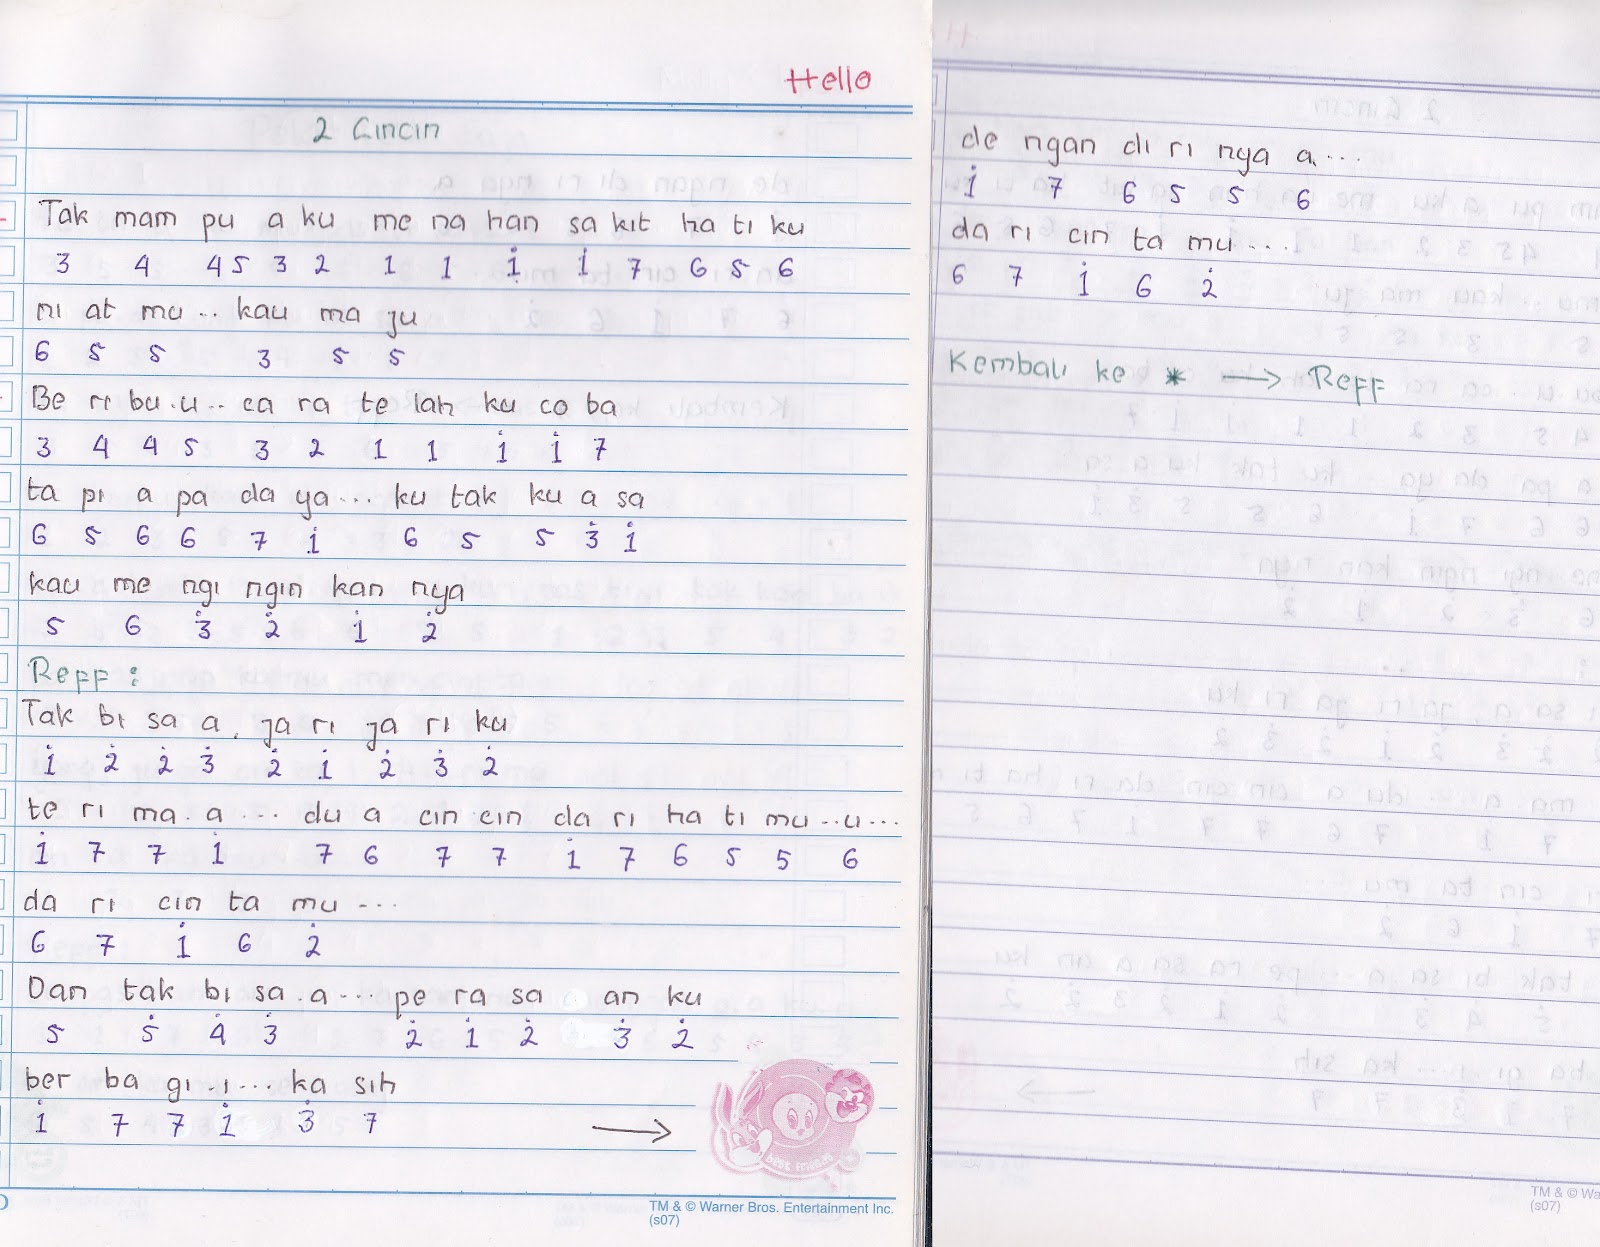 Hello
2 Cincin
Tak mam pu a ku me na han sa kit ha ti ku
3 4 4 5 3 2 1 1 1̇ 1̇ 7 6 5 6
ni at mu .. kau ma ju
6 5 5 3 5 5
Be ri bu . u .. ca ra te lah ku co ba
3 4 4 5 3 2 1 1 1̇ 1̇ 7
ta pi a pa da ya ... ku tak ku a sa
6 5 6 6 7 1̇ 6 5 5 3̇ 1̇
kau me ngi ngin kan nya
5 6 3̇ 2̇ 1̇ 2̇
Reff :
Tak bi sa a , ja ri ja ri ku
1̇ 2̇ 2̇ 3̇ 2̇ 1̇ 2̇ 3̇ 2̇
te ri ma . a ... du a cin cin da ri ha ti mu .. u ...
1̇ 7 7 1̇ 7 6 7 7 1̇ 7 6 5 5 6
da ri cin ta mu ...
6 7 1̇ 6 2̇
Dan tak bi sa . a ... pe ra sa an ku
5 5̇ 4̇ 3̇ 2̇ 1̇ 2̇ 3̇ 2̇
ber ba gi . i ... ka sih
1̇ 7 7 1̇ 3̇ 7
best friends
TM & © Warner Bros. Entertainment Inc.
(s07)
de ngan di ri nya a ...
1̇ 7 6 5 5 6
da ri cin ta mu ...
6 7 1̇ 6 2̇
Kembali ke * → Reff
TM & © Wa
(s07)